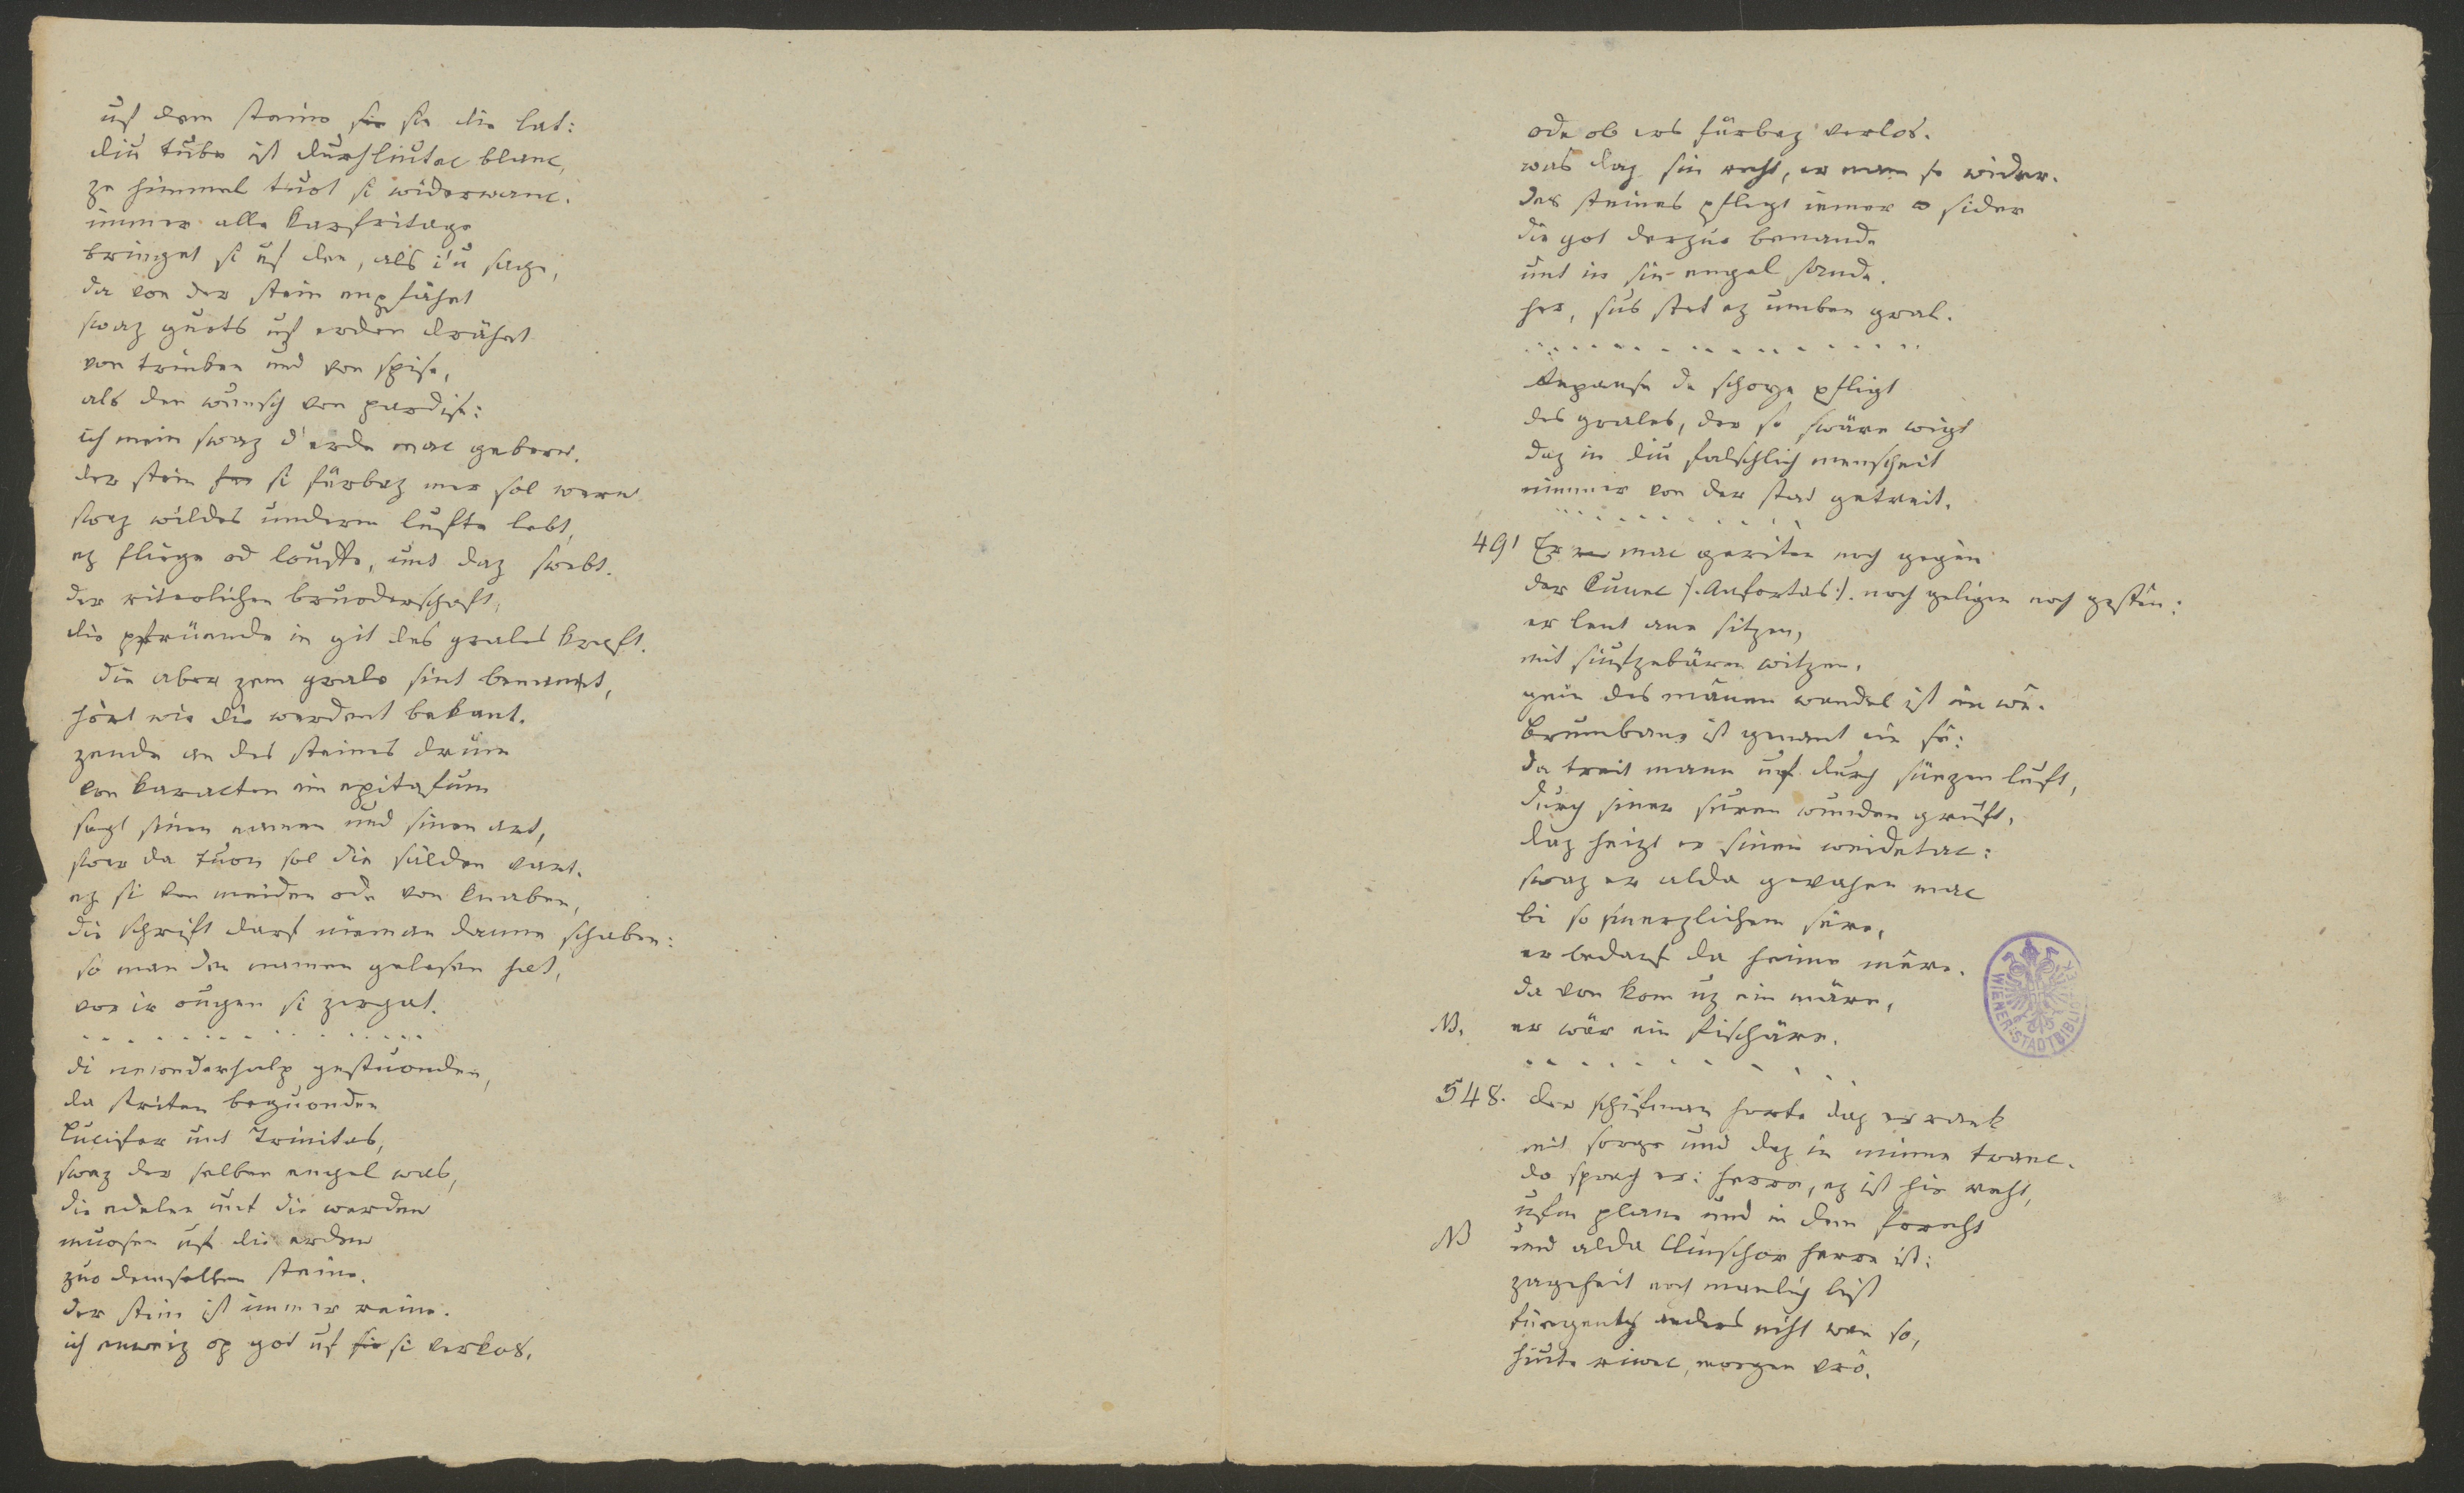 uf dem steine sie sie die lat:
diu tube ist durhliutec blanc,
ze himmel tuot si widerwanc.
immer alle karfritage
bringet si uf den, als i'u sage,
da von der stein enpfähet
swaz guots uf erden drähet
von trinken und von spise,
als den wunsch von pardise:
ich mein swaz d'erde mac gebern.
der stein si fürbaz mer sol wern
swaz wildes underm lufte lebt,
ez fliege od louffe, unt daz swebt.
der riterlichen bruoderschaft,
die pfrüende in git des grales kraft.
die aber zem grale sint benennt,
hört wie die werdent bekant.
zende an des steines drum
von karacten ein epitafum
sagt sinen namen und sinen art,
swer da tuon sol die sälden vart.
ez si von meiden ode von knaben,
die schrift darf nieman danne schaben:
so man den namen gelesen hat,
vor ir ougen si zergat.
. . . . . . . . . . . . . .
di newederhalp gestuonden,
da striten beguonden
Lucifer unt Trinitas,
swaz der selben engel was,
die edelen unt die werden
muosen uf die erden
zuo demselben steine.
der stein ist immer reine.
ich enweiz op got uf sie si verkos,
ode ob ers fürbaz verlos.
was daz sin reht, er nam se wider.
des steines pfligt iemer sider
die got derzuo benande
unt in sin engel sande.
her, sus stet ez umben gral.
. . . . . . . . . . . . . .
Repanse de schoye pfligt
des grales, der so swäre wigt
daz in diu falschlich menscheit
nimmer von der stat getreit.
. . . . . . . . . .
491 Er mac geriten noch gegên
der künec /: Anfortas :/. noch geligen noch gestên:
er lent ane sitzen,
mit siuftzebären witzen.
gein des mânen wandel ist im wê.
Brumbane ist genant ein sê:
da treit mann uf durch süezen luft,
durch siner suren wunden gruft.
daz heizt er sinen weidetac:
swaz er alda gevahen mac
bi so smerzlichem sêre,
er bedarf da heime mêre.
da von kom uz ein märe,
NB. er wär ein fischäre.
. . . . . . . . . .
548. der schifman horte daz er ranc
mit sorge und daz in minne twanc.
do sprach er: herre, ez ist hie reht,
ufem plane und in dem foreht
NB und alda Clinschor herre ist:
zageheit noch manlich list
füegentz anders niht wan so,
hiute riwec, morgen vrô.
WIENER-STADTBIBLIOTHEK